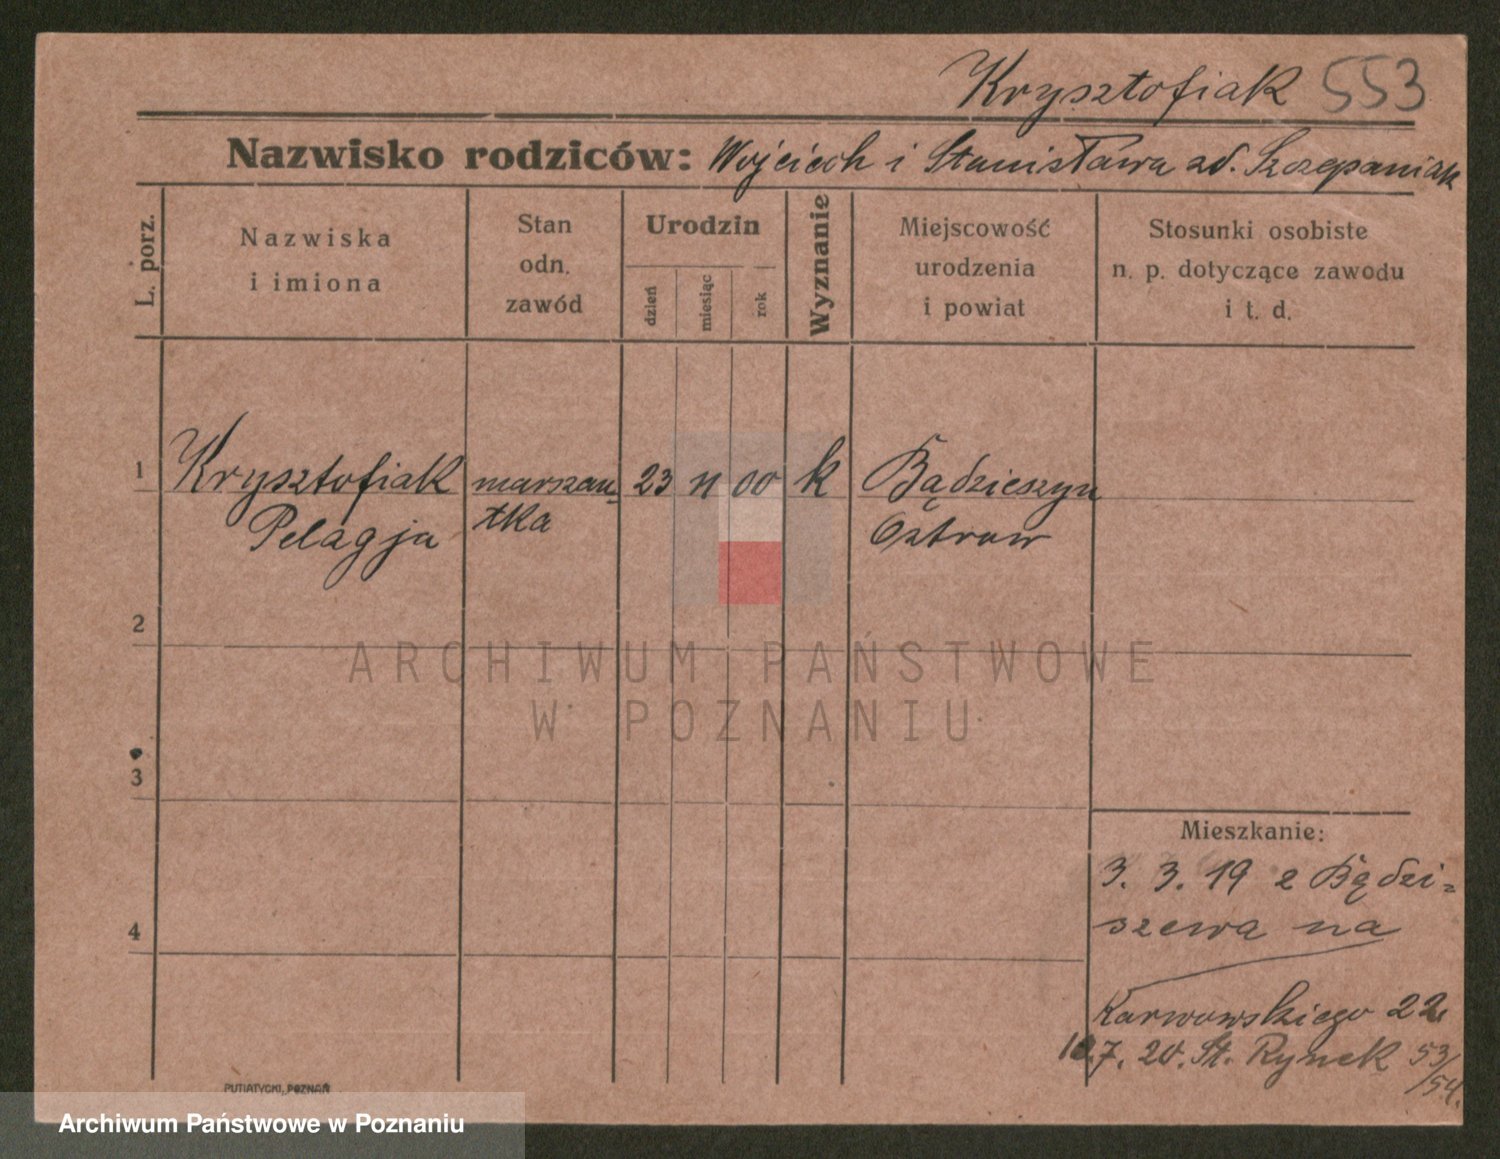 Krysztofiak 553
Nazwisko rodziców: Wojciech i Stanisława zd. Szczepaniak
L. porz.
Nazwiska
i imiona
Stan
odn.
zawód
Urodzin
dzień
miesiąc
rok
Wyznanie
Miejscowość
urodzenia
i powiat
Stosunki osobiste
n. p. dotyczące zawodu
i t. d.
1
Krysztofiak marszan= 23 11 00 k Bądzieszyn
Pelagja tka Ostrow
2
ARCHIWUM PAŃSTWOWE
W POZNANIU
3
Mieszkanie:
3. 3. 19 z Bądzi=
szewa na
4
Karwowskiego 22
7. 20. St. Rynek 53/54.
PUTIATYCKI, POZNAŃ
Archiwum Państwowe w Poznaniu